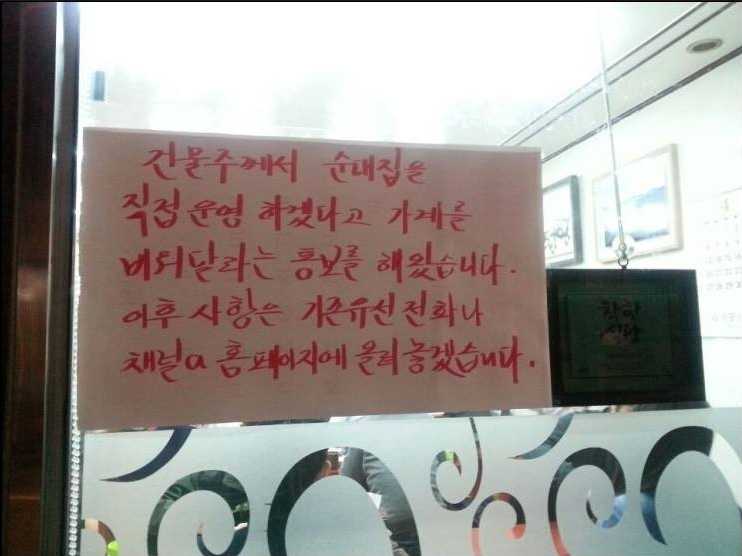 건물주께서 순대집을
직접 운영 하겠다고 가게를
비워달라는 통보를 해왔습니다.
이후 사항은 기존유선전화나
채널a 홈페이지에 올려 놓겠습니다.
착한
식당